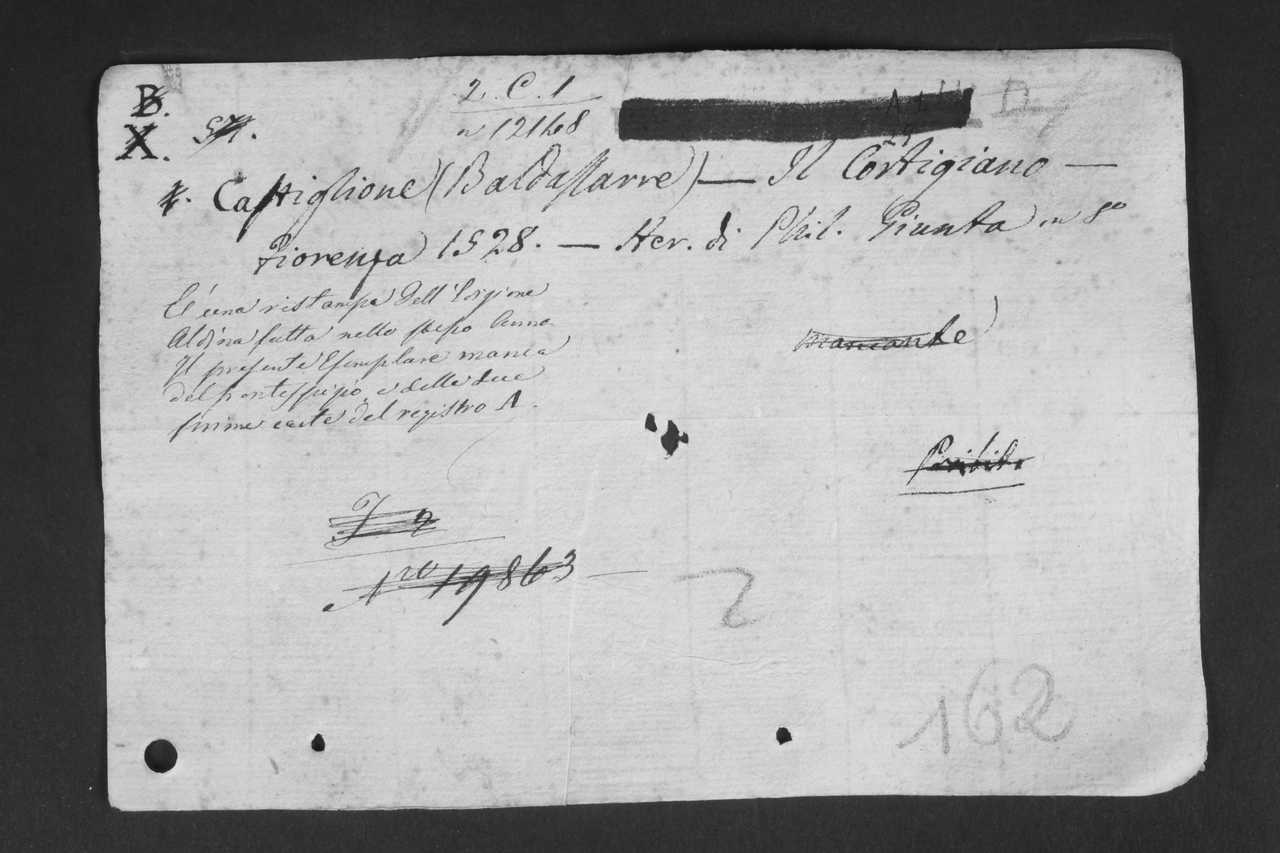 B.
X.
2. C. 1
nº 12148
Castiglione (Baldassarre) — Il Cortigiano —
Fiorenza 1528. — Her. di Phil. Giunta in 8º
E' una ristampa dell'Edizione
Aldina fatta nello stesso Anno
Il presente Esemplare manca
del frontespizio, e delle due
prime carte del registro A.
mancante
Nro 19863
2
162